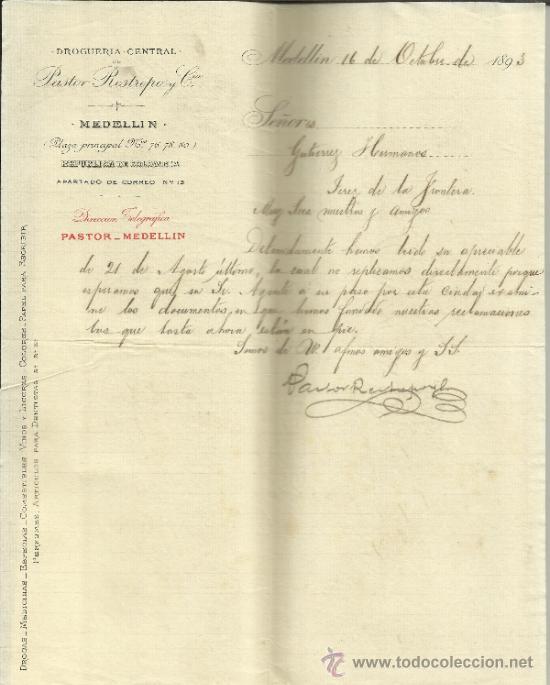 DROGUERIA CENTRAL
DE
Pastor Restrepo y Cia
MEDELLIN
(Plaza principal Nos 76. 78. 80.)
REPUBLICA DE COLOMBIA
APARTADO DE CORREO Nº 12
Direccion Telegráfica
PASTOR_MEDELLIN
Medellin 16 de Octubre de 1893
Señores
Gutierrez Hermanos
Jerez de la Frontera
Muy Sres nuestros y amigos
Detenidamente hemos leido su apreciable
de 21 de Agosto último, la cual no replicamos directamente porque
esperamos que su Sr. Agente á su paso por esta Ciudad exami-
ne los documentos, en que hemos fundado nuestras reclamaciones
las que hasta ahora están en pie.
Somos de W. afmos amigos y SS.
Pastor Restrepo y Cª
DROGAS_MEDICINAS_ESPECIAS_COMESTIBLES_VINOS Y LICORES_COLORES_PAPEL PARA ESCRIBIR
PERFUMES, ARTICULOS PARA DENTISTAS, &ª &ª &ª
todocoleccion
www.todocoleccion.net